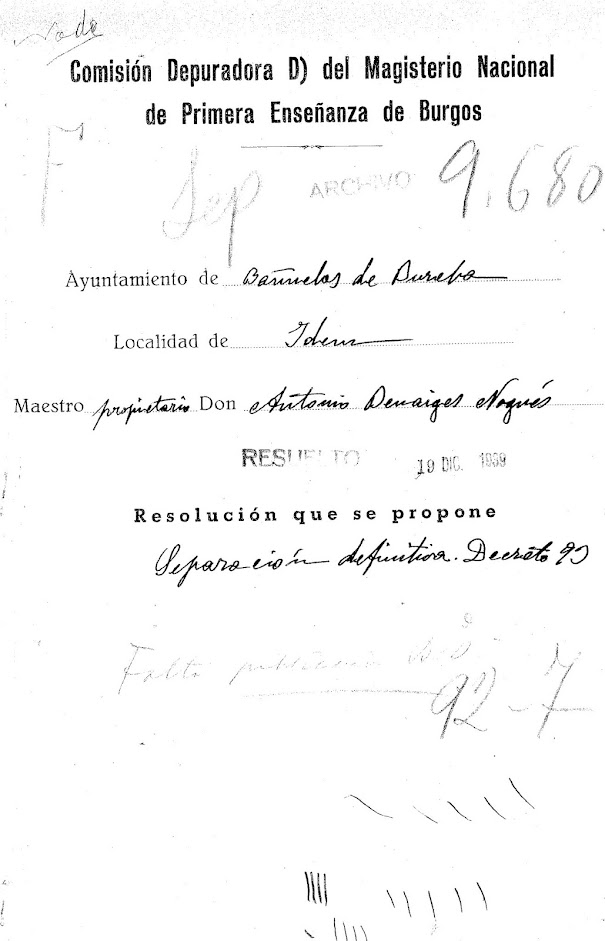 Comisión Depuradora D) del Magisterio Nacional
de Primera Enseñanza de Burgos
F
Sep
ARCHIVO
9.680
Ayuntamiento de Bañuelos de Bureba
Localidad de Idem
Maestro propietario Don Antonio Benaiges Nogués
RESUELTO 19 DIC. 1939
Resolución que se propone
Separación definitiva. Decreto 93
Falta publicación B.O
92-7